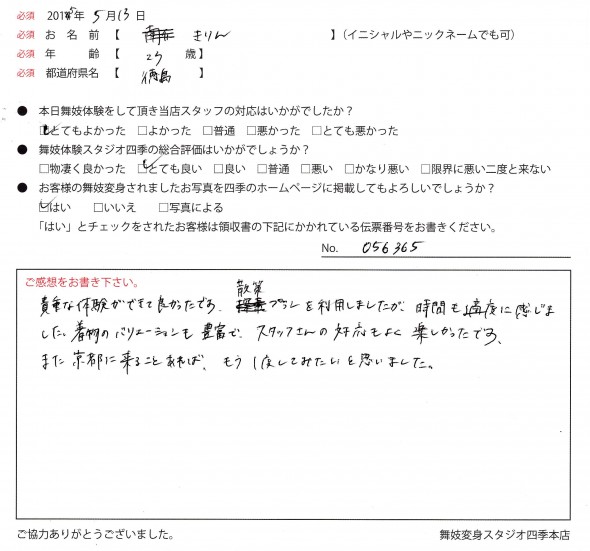 必須 2015年 5月13日
必須 お名前【 きりん 】（イニシャルやニックネームでも可）
必須 年齢【 23 歳】
必須 都道府県名【 徳島 】
● 本日舞妓体験をして頂き当店スタッフの対応はいかがでしたか？
□とてもよかった □よかった □普通 □悪かった □とても悪かった
● 舞妓体験スタジオ四季の総合評価はいかがでしょうか？
□物凄く良かった □とても良い □良い □普通 □悪い □かなり悪い □限界に悪い二度と来ない
● お客様の舞妓変身されましたお写真を四季のホームページに掲載してもよろしいでしょうか？
□はい □いいえ □写真による
「はい」とチェックをされたお客様は領収書の下記にかかれている伝票番号をお書きください。
No. 056365
ご感想をお書き下さい。
貴重な体験ができて良かったです。散策プランを利用しましたが、時間も適度に感じま
した。着物のバリエーションも豊富で、スタッフさんの対応もよく楽しかったです。
また京都に来ることあれば、もう1度してみたいと思いました。
ご協力ありがとうございました。
舞妓変身スタジオ四季本店